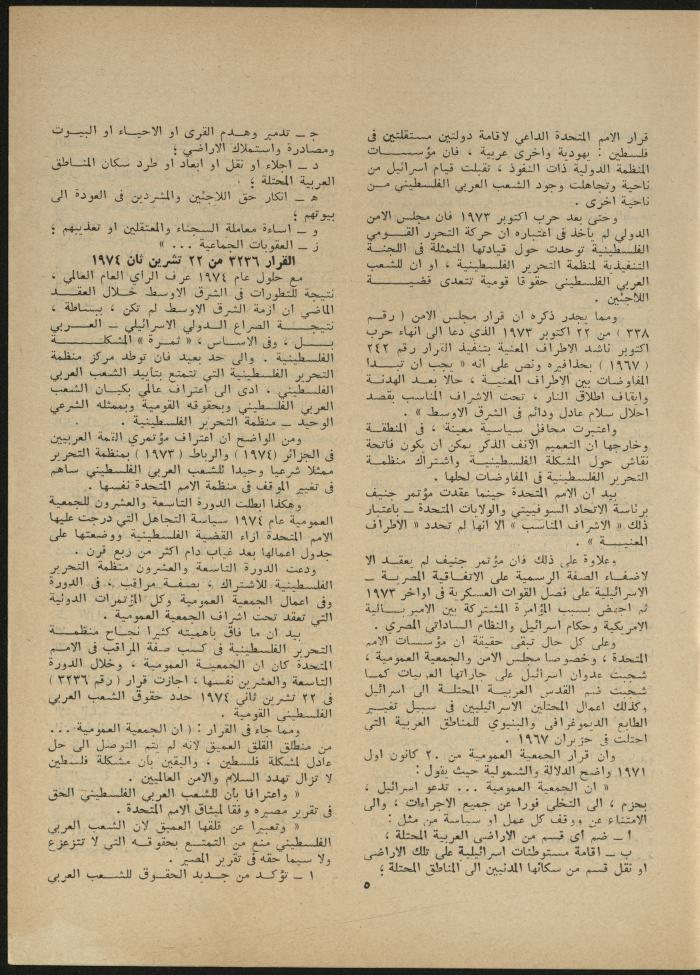 قرار الامم المتحدة الداعي لاقامة دولتين مستقلتين في
فلسطين : يهودية واخرى عربية ، فان مؤسسات
المنظمة الدولية ذات النفوذ ، تقبلت قيام اسرائيل من
ناحية وتجاهلت وجود الشعب العربي الفلسطيني من
ناحية اخرى .
وحتى بعد حرب اكتوبر ١٩٧٣ فان مجلس الامن
الدولي لم يأخذ في اعتباره ان حركة التحرر القومي
الفلسطينية توحدت حول قيادتها المتمثلة في اللجنة
التنفيذية لمنظمة التحرير الفلسطينية ، او ان للشعب
العربي الفلسطيني حقوقا قومية تتعدى قضية
اللاجئين .
ومما يجدر ذكره ان قرار مجلس الامن ( رقم
٣٣٨ ) من ٢٢ اكتوبر ١٩٧٣ الذي دعا الى انهاء حرب
اكتوبر ناشد الاطراف المعنية بتنفيذ القرار رقم ٢٤٢
( ١٩٦٧ ) بحذافيره ونص على انه « يجب ان تبدا
المفاوضات بين الاطراف المعنية ، حالا بعد الهدنة
وايقاف اطلاق النار ، تحت الاشراف المناسب بقصد
احلال سلام عادل ودائم في الشرق الاوسط » .
واعتبرت محافل سياسية معينة ، في المنطقة
وخارجها ان التعميم الآنف الذكر يمكن ان يكون فاتحة
نقاش حول المشكلة الفلسطينية واشتراك منظمة
التحرير الفلسطينية في المفاوضات لحلها .
بيد ان الامم المتحدة حينما عقدت مؤتمر جنيف
برئاسة الاتحاد السوفييتي والولايات المتحدة ــ باعتبار
ذلك « الاشراف المناسب » الا انها لم تحدد « الاطراف
المعنية » .
وعلاوة على ذلك فان مؤتمر جنيف لم يعقد الا
لاضفاء الصفة الرسمية على الاتفاقية المصرية ــ
الاسرائيلية على فصل القوات العسكرية في اواخر ١٩٧٣
ثم اجهض بسبب المؤامرة المشتركة بين الامبريالية
الامريكية وحكام اسرائيل والنظام الساداتي المصري .
وعلى كل حال تبقى حقيقة ان مؤسسات الامم
المتحدة ، وخصوصا مجلس الامن والجمعية العمومية ،
شجبت عدوان اسرائيل على جاراتها العربيات كما
شجبت ضم القدس العربية المحتلة الى اسرائيل
وكذلك اعمال المحتلين الاسرائيليين في سبيل تغيير
الطابع الديموغرافي والبنيوي للمناطق العربية التي
احتلت في حزيران ١٩٦٧ .
وان قرار الجمعية العمومية من ٢٠ كانون اول
١٩٧١ واضح الدلالة والشمولية حيث يقول :
« ان الجمعية العمومية ... تدعو اسرائيل ،
بحزم ، الى التخلي فورا عن جميع الاجراءات ، والى
الامتناع عن ووقف كل عمل او سياسة من مثل :
أ ــ ضم اي قسم من الاراضي العربية المحتلة ،
ب ــ اقامة مستوطنات اسرائيلية على تلك الاراضي
او نقل قسم من سكانها المدنيين الى المناطق المحتلة ؛
جـ ــ تدمير وهدم القرى او الاحياء او البيوت
ومصادرة واستملاك الاراضي ؛
د ــ اجلاء او نقل او ابعاد او طرد سكان المناطق
العربية المحتلة ؛
هـ ــ انكار حق اللاجئين والمشردين في العودة الى
بيوتهم ؛
و ــ اساءة معاملة السجناء والمعتقلين او تعذيبهم ؛
ز ــ العقوبات الجماعية ... »
القرار ٣٢٣٦ من ٢٢ تشرين ثان ١٩٧٤
مع حلول عام ١٩٧٤ عرف الراي العام العالمي ،
نتيجة للتطورات في الشرق الاوسط خلال العقد
الماضي ان ازمة الشرق الاوسط لم تكن ، ببساطة ،
نتيجة الصراع الدولي الاسرائيلي ــ العربي
بل ، وفي الاساس ، « ثمرة » المشكلة
الفلسطينية . والى حد بعيد فان توطد مركز منظمة
التحرير الفلسطينية التي تتمتع بتأييد الشعب العربي
الفلسطيني ، ادى الى اعتراف عالمي بكيان الشعب
العربي الفلسطيني وبحقوقه القومية وبممثله الشرعي
الوحيد ــ منظمة التحرير الفلسطينية .
ومن الواضح ان اعتراف مؤتمري القمة العربيين
في الجزائر ( ١٩٧٤ ) والرباط ( ١٩٧٣ ) بمنظمة التحرير
ممثلا شرعيا وحيدا للشعب العربي الفلسطيني ساهم
في تغيير الموقف في منظمة الامم المتحدة نفسها .
وهكذا ابطلت الدورة التاسعة والعشرون للجمعية
العمومية عام ١٩٧٤ سياسة التجاهل التي درجت عليها
الامم المتحدة ازاء القضية الفلسطينية ووضعتها على
جدول اعمالها بعد غياب دام اكثر من ربع قرن .
ودعت الدورة التاسعة والعشرون منظمة التحرير
الفلسطينية للاشتراك ، بصفة مراقب ، في الدورة
وفي اعمال الجمعية العمومية وكل المؤتمرات الدولية
التي تعقد تحت اشراف الجمعية العمومية .
بيد ان ما فاق باهميته كثيرا نجاح منظمة
التحرير الفلسطينية في كسب صفة المراقب في الامم
المتحدة كان ان الجمعية العمومية ، وخلال الدورة
التاسعة والعشرين نفسها ، اجازت قرار ( رقم ٣٢٣٦ )
في ٢٢ تشرين ثاني ١٩٧٤ حدد حقوق الشعب العربي
الفلسطيني القومية .
ومما جاء في القرار : ( ان الجمعية العمومية ...
من منطلق القلق العميق لانه لم يتم التوصل الى حل
عادل لمشكلة فلسطين ، واليقين بأن مشكلة فلسطين
لا تزال تهدد السلام والامن العالميين .
« واعترافا بأن للشعب العربي الفلسطيني الحق
في تقرير مصيره وفقا لميثاق الامم المتحدة .
« وتعبيرا عن قلقها العميق لان الشعب العربي
الفلسطيني منع من التمتع بحقوقه التي لا تتزعزع
ولا سيما حقه في تقرير المصير .
١ ــ تؤكد من جديد الحقوق للشعب العربي
٥